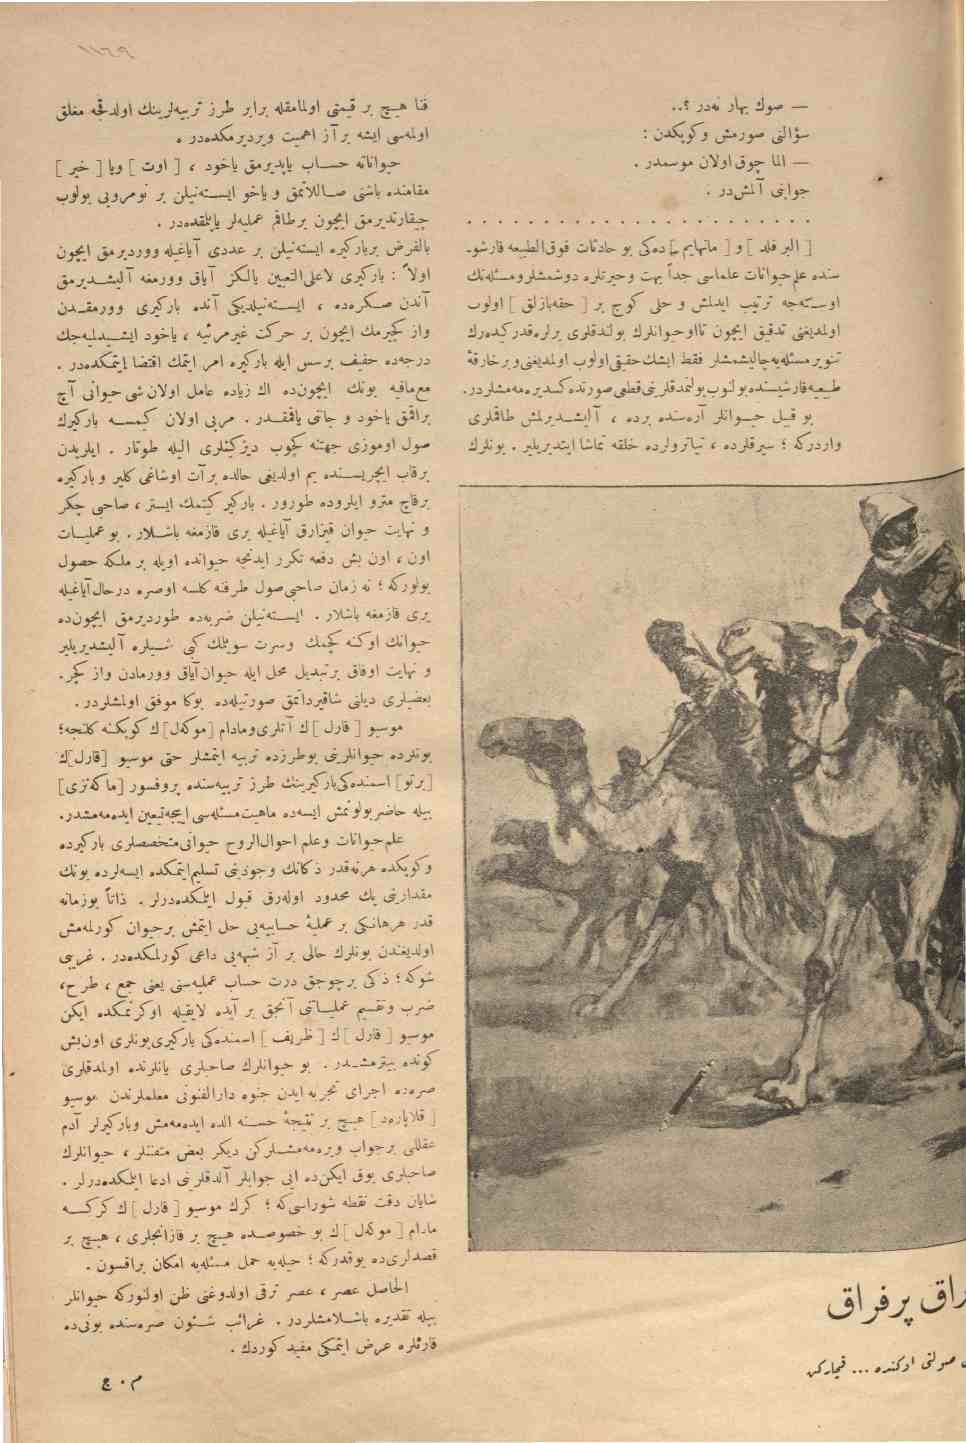 ١١٦٩
— صوك بهار نه‌در ؟..
سؤالنى صورمش وكوپكدن :
— الما چوق اولان موسمدر .
جوابنى آلمش‌در .
[ البرفلد ] و [ مانهايم ] ده‌كى بو حادثات فوق‌الطبيعه قارشو‌ـ
سنده علم‌حيوانات علماسى جداً بهت وحيرتلره دوشمشلر ومسئله‌نك
اوسته‌جه ترتيب ايدلمش و حلى كوچ بر [ حقه‌بازلق ] اولوب
اولمديغنى تدقيق ايچون تا او حيوانلرك بولندقلرى يرلره قدر كيده‌رك
تنوير مسئله‌يه چاليشمشلر فقط ايشك حقيقى اولوب اولمديغنى و بر خارقۀ
طبيعيه قارشيسنده بولنوب بولنمدقلرينى قطعى صورتده كسديره‌مه‌مشلردر.
بو قبيل حيوانلر آره‌سنده برده ، آليشديرلمش طاقملرى
واردركه ؛ سيرقلرده ، تياترولرده خلقه تماشا ايتديريلير . بونلرك
فنا هيچ بر قيمتى اولمامقله برابر طرز تربيه‌لرينك اولدقجه مغلق
اولمه‌سى ايشه بر آز اهميت ويرديرمكده‌در .
حيواناته حساب ياپديرمق ياخود ، [ اوت ] ويا [ خير ]
مقامنده باشنى صاللاتمق و ياخو ايسته‌نيلن بر نومرويى بولوب
چيقارتديرمق ايچون برطاقم عمليه‌لر ياپلمقده‌در .
بالفرض بر باركيره ايسته‌نيلن بر عددى آياغيله ووردیرمق ايچون
اولا : باركيرى لاعلى‌التعيين يالكز آياق وورمغه آليشديرمق
آندن صكره‌ده ، ايسته‌نيلديكى آنده باركيرى وورمقدن
واز كچيرمك ايچون بر حركت غيرمرئيه ، ياخود ايشيديله‌جك
درجه‌ده خفيف بر سس ايله باركيره امر ايتمك اقتضا ايتمكده‌در .
مع‌مافيه بونك ايچون‌ده اك زياده عامل اولان شى حيوانى آچ
براقمق ياخود و جانى ياقمقدر . مربى اولان كيمسه باركيرك
صول اوموزى جهتنه كچوب ديزكينلرى اليله طوتار . ايلريدن
بر قاب ايچريسنده يم اولديغى حالده بر آت اوشاغى كلير و باركيره
برقاچ مترو ايلروده طورور . باركير كيتمك ايستر ، صاحبى چكر
و نهايت حيوان قيزارق آياغيله يرى قازمغه باشلار . بو عمليات
اون ، اون بش دفعه تكرر ايدنجه حيوانده اويله بر ملكه حصول
بولوركه ؛ نه زمان صاحبى صول طرفنه كلسه اوصره درحال آياغيله
يرى قازمغه باشلار . ايسته‌نيلن ضربه‌ده طوردیرمق ايچون‌ده
حيوانك اوكنه كچمك وسرت سويلمك كبى شيلره آليشديريلير
و نهايت اوفاق بر تبديل محل ايله حيوان آياق وورمادن واز كچر.
بعضيلرى ديلنى شاقيرداتمق صورتيله‌ده بوكا موفق اولمشلردر .
موسيو [ قارل ] ك آتلرى ومادام [موكه‌ل] ك كوپكنه كلنجه؛
بونلرده حيوانلرينى بوطرزده تربيه ايتمشلر حتى موسيو [قارل]ك
[برتو] اسمنده‌كى باركيرينك طرز تربيه‌سنده پروفسور [ماكه‌نزى]
بيله حاضر بولونمش ايسه‌ده ماهيت مسئله‌سى اييجه تعيين ايده‌مه‌مشدر.
علم‌حيوانات وعلم احوال‌الروح حيوانى متخصصلرى باركيرده
وكوپكده هرنه‌قدر ذكانك وجودينى تسليم ايتمكده ايسه‌لرده بونك
مقدارينى پك محدود اوله‌رق قبول ايتمكده‌درلر . ذاتاً بوزمانه
قدر هرهانكى بر عمليۀ حسابيه‌يى حل ايتمش برحيوان كورلمه‌مش
اولديغندن بونلرك حالى بر آز شبهه‌يى داعى كورلمكده‌در . غريبى
شوكه ؛ ذكى برچوجق درت حساب عمليه‌سنى يعنى جمع ، طرح،
ضرب وتقسيم عملياتنى آنجق بر آيده لايقيله اوكرنمكده ايكن
موسيو [ قارل ] ك [ ظريف ] اسمنده‌كى باركيرى بونلرى اون‌بش
كونده بيتيرمشدر . بو حيوانلرك صاحبلرى يانلرنده اولمدقلرى
صره‌ده اجراى تجربه ايدن جنوه دارالفنونى معلملرندن موسيو
[ قلاپاره‌د ] هيچ بر نتيجۀ حسنه الده ايده‌مه‌مش وباركيرلر آدم
عقللى برجواب ويره‌مه‌مشلركن ديكر بعض متفننلر ، حيوانلرك
صاحبلرى يوق ايكن‌ده ايى جوابلر آلدقلرينى ادعا ايتمكده‌درلر .
شايان دقت نقطه شوراسى‌كه ؛ كرك موسيو [ قارل ] ك كركسه
مادام [ موكه‌ل ] ك بو خصوصده هيچ بر قازانجلرى ، هيچ بر
قصدلرى‌ده يوقدركه ؛ حيله‌يه حمل مسئله‌يه امكان براقسون .
الحاصل عصر ، عصر ترقى اولدوغنى ظن اولنوركه حيوانلر
بيله تقديره باشلامشلردر . غرائب شئون صره‌سنده بونى‌ده
قارئلره عرض ايتمكى مفيد كوردك .
م . ج
راق پرفراق
صولتى اوكنده ... قيچاركن